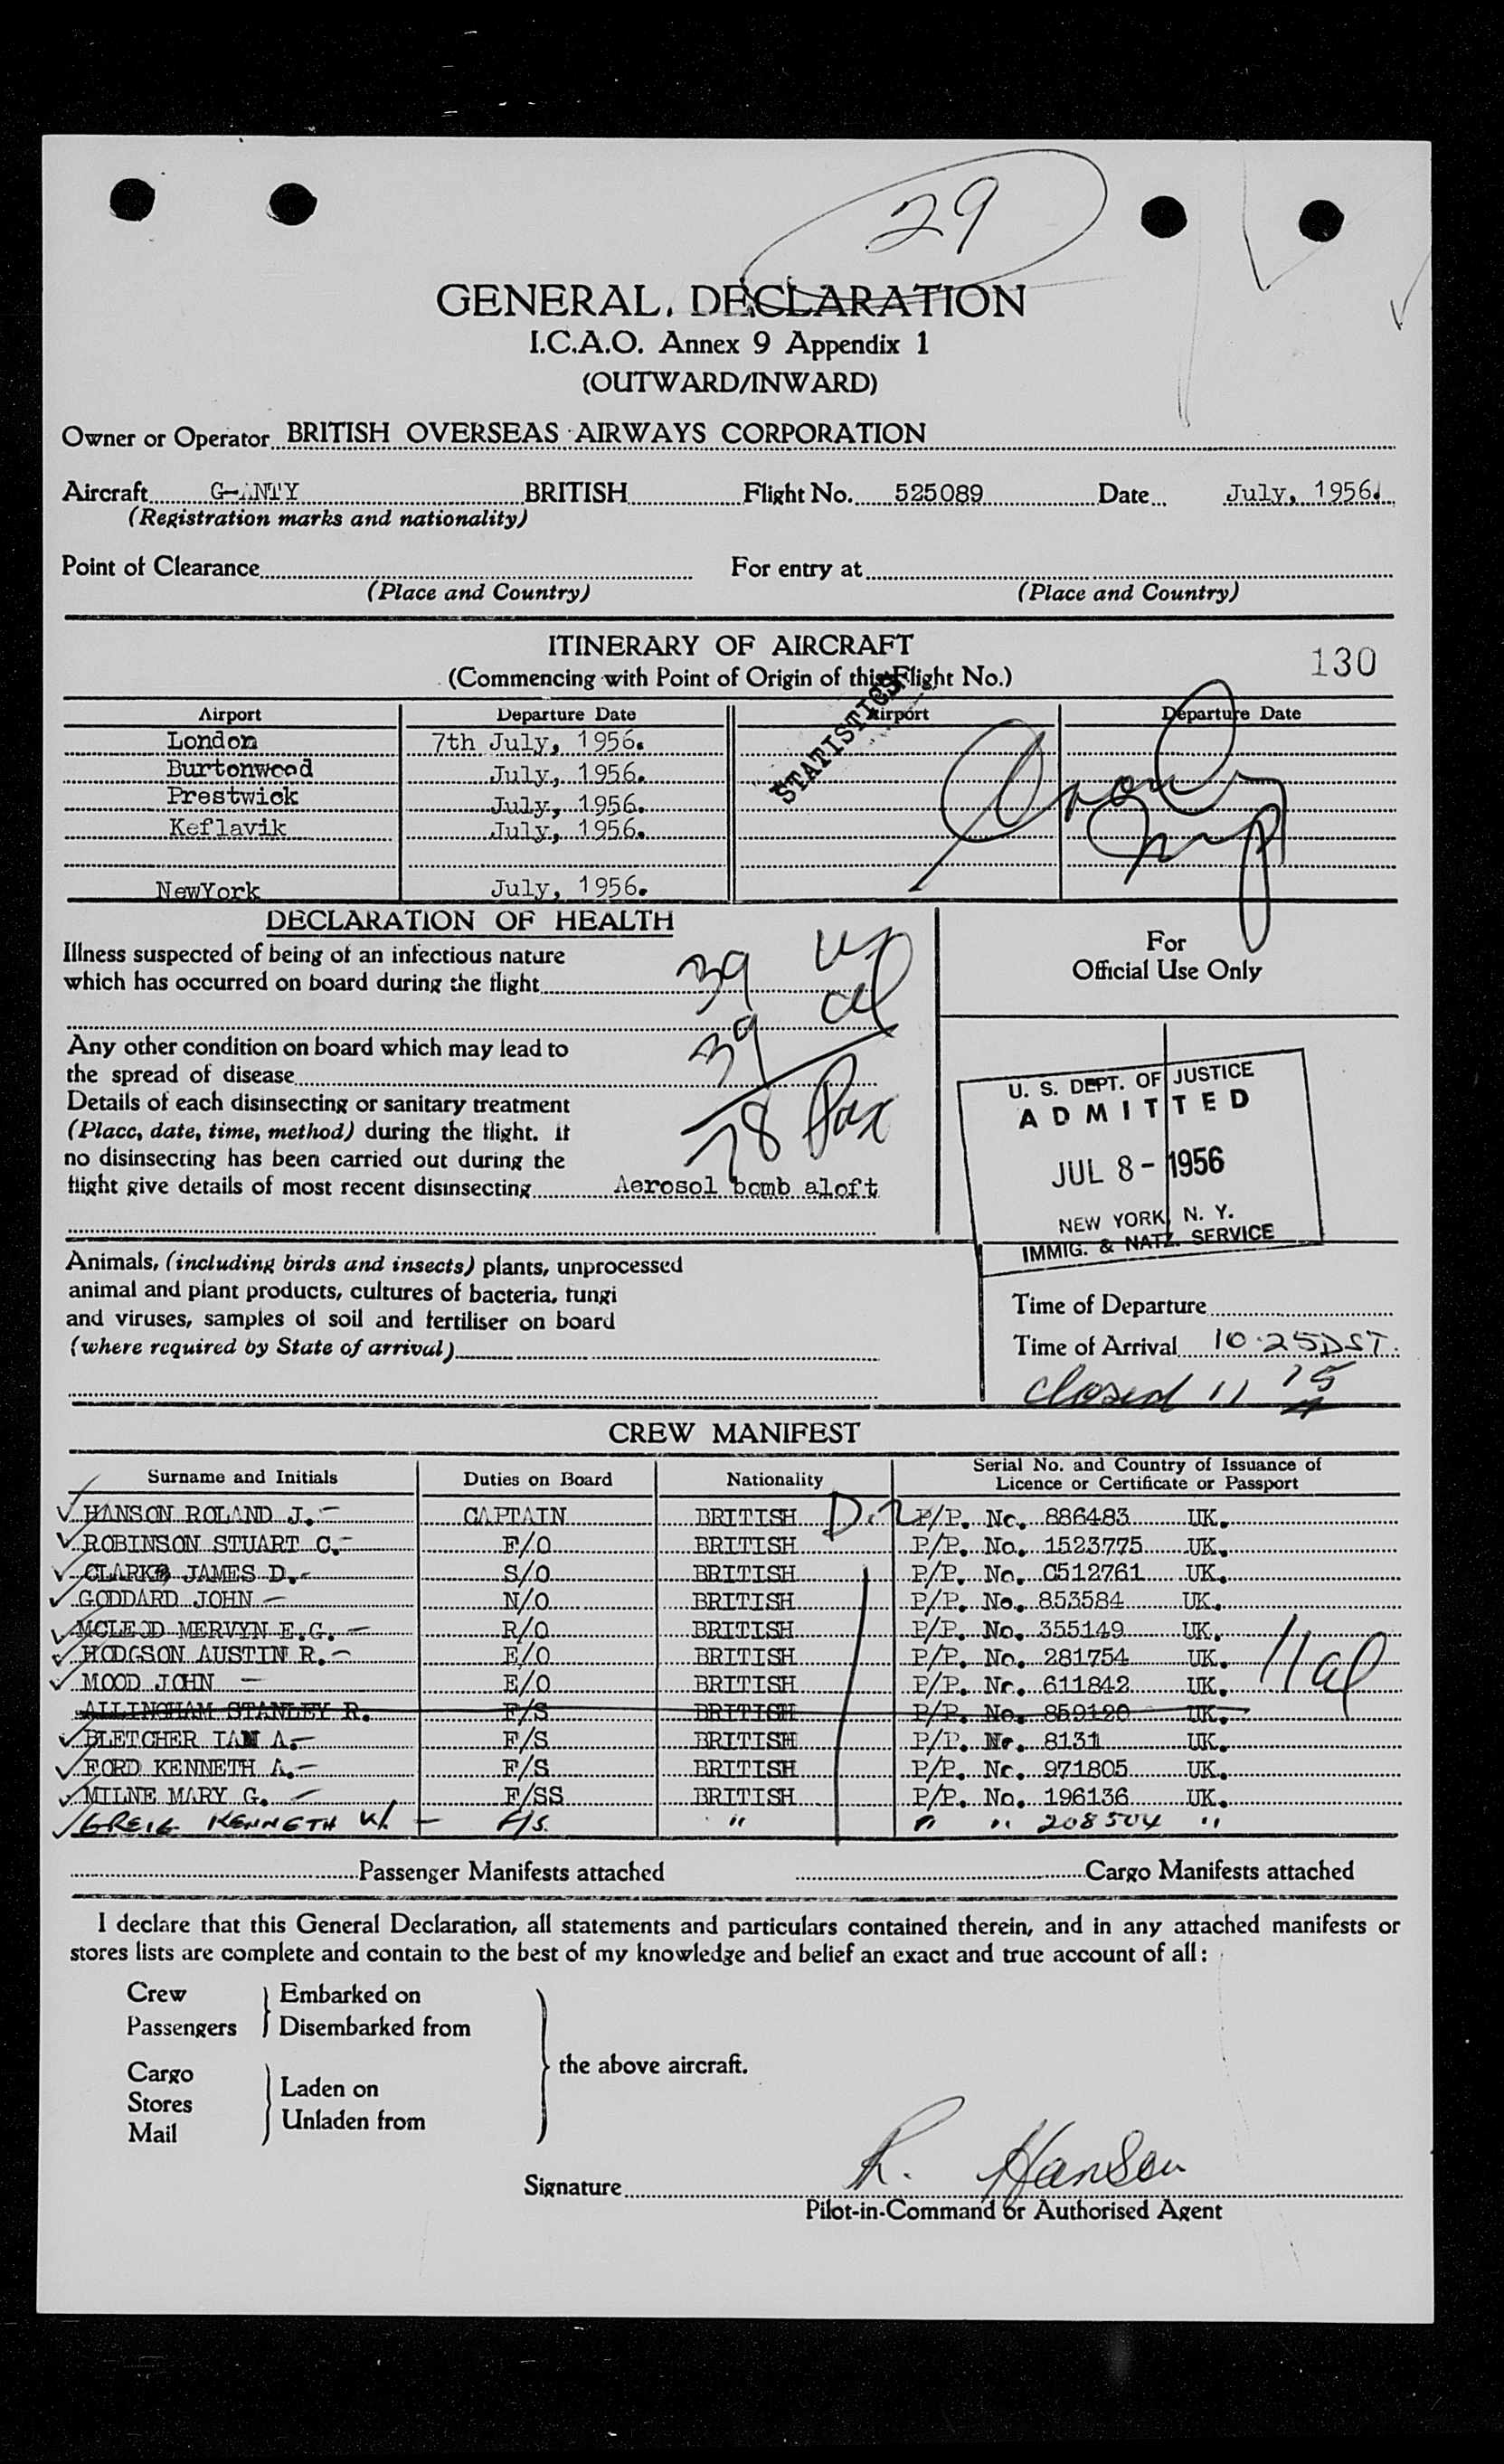 29
GENERAL DECLARATION
I.C.A.O. Annex 9 Appendix 1
(OUTWARD/INWARD)
Owner or Operator BRITISH OVERSEAS AIRWAYS CORPORATION
Aircraft G-ANTY BRITISH Flight No. 525089 Date July, 1956.
(Registration marks and nationality)
Point of Clearance For entry at
(Place and Country) (Place and Country)
ITINERARY OF AIRCRAFT
130
(Commencing with Point of Origin of this Flight No.)
STATISTICS
Airport Departure Date Airport Departure Date
London 7th July, 1956.
Burtonwood July, 1956.
Prestwick July, 1956.
Keflavik July, 1956.
NewYork July, 1956.
DECLARATION OF HEALTH
For
Official Use Only
Illness suspected of being of an infectious nature
which has occurred on board during the flight 39
39 al
Any other condition on board which may lead to
the spread of disease
78 Pax
Details of each disinsecting or sanitary treatment
(Place, date, time, method) during the flight. If
no disinsecting has been carried out during the
flight give details of most recent disinsecting Aerosol bomb aloft
U. S. DEPT. OF JUSTICE
ADMITTED
JUL 8 - 1956
NEW YORK, N. Y.
IMMIG. & NATZ. SERVICE
Animals, (including birds and insects) plants, unprocessed
animal and plant products, cultures of bacteria, fungi
and viruses, samples of soil and fertiliser on board
(where required by State of arrival)
Time of Departure
Time of Arrival 10.25 DST.
closed 11 15
CREW MANIFEST
Surname and Initials Duties on Board Nationality Serial No. and Country of Issuance of Licence or Certificate or Passport
HANSON ROLAND J. CAPTAIN BRITISH D.2 P/P. No. 886483 UK.
ROBINSON STUART C. F/O BRITISH P/P. No. 1523775 UK.
CLARKE JAMES D. S/O BRITISH P/P. No. C512761 UK.
GODDARD JOHN N/O BRITISH P/P. No. 853584 UK.
MCLEOD MERVYN E.G. R/O BRITISH P/P. No. 355149 UK.
HODGSON AUSTIN R. E/O BRITISH P/P. No. 281754 UK. 11 al
MOOD JOHN E/O BRITISH P/P. Nr. 611842 UK.
ALLINGHAM STANLEY R. F/S BRITISH P/P. No. 859120 UK.
BLETCHER IAN A. F/S BRITISH P/P. Nr. 8131 UK.
FORD KENNETH A. F/S BRITISH P/P. Nc. 971805 UK.
MILNE MARY G. F/SS BRITISH P/P. No. 196136 UK.
GREIG KENNETH W. F/S. " " " 208504 "
Passenger Manifests attached Cargo Manifests attached
I declare that this General Declaration, all statements and particulars contained therein, and in any attached manifests or
stores lists are complete and contain to the best of my knowledge and belief an exact and true account of all:
Crew Embarked on
Passengers Disembarked from
the above aircraft.
Cargo
Laden on
Stores
Unladen from
Mail
Signature R. Hanson
Pilot-in-Command or Authorised Agent